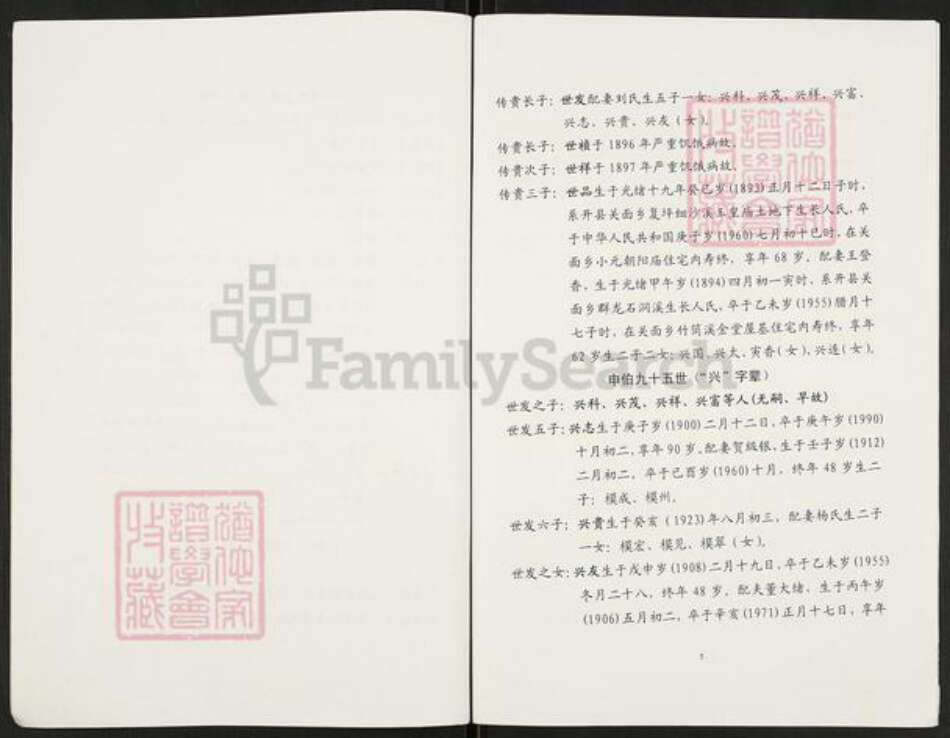 传贵长子：世发配妻刘氏生五子一女：兴科、兴茂、兴祥、兴富、
兴志、兴贵、兴友（女）。
传贵长子：世植于1896年严重饥饿病故。
传贵次子：世祥于1897年严重饥饿病故。
传贵三子：世品生于光绪十九年癸巳岁(1893)正月十二日子时，
系开县关面乡复坪细沙溪玉皇庙土地下生长人氏，卒
于中华人民共和国庚子岁(1960)七月初十巳时，在关
面乡小元朝阳庙住宅内寿终，享年68岁，配妻王登
香，生于光绪甲午岁(1894)四月初一寅时，系开县关
面乡群龙石洞溪生长人氏，卒于乙未岁(1955)腊月十
七子时，在关面乡竹筒溪金堂屋基住宅内寿终，享年
62岁生二子二女：兴国、兴太、寅香(女)、兴连(女)。
申伯九十五世（“兴”字辈）
世发之子：兴科、兴茂、兴祥、兴富等人(无嗣、早故)
世发五子：兴志生于庚子岁(1900)二月十二日，卒于庚午岁(1990)
十月初二，享年90岁，配妻贺级银，生于壬子岁(1912)
二月初二，卒于己酉岁(1960)十月，终年48岁生二
子：模成、模州。
世发六子：兴贵生于癸亥（1923)年八月初三，配妻杨氏生二子
一女：模宏、模见、模翠（女）。
世发之女：兴友生于戊申岁(1908)二月十九日，卒于乙未岁(1955)
冬月二十八，终年48岁，配夫董大绪，生于丙午岁
(1906)五月初二，卒于辛亥(1971)正月十七日，享年
FamilySearch
譜學會
收藏